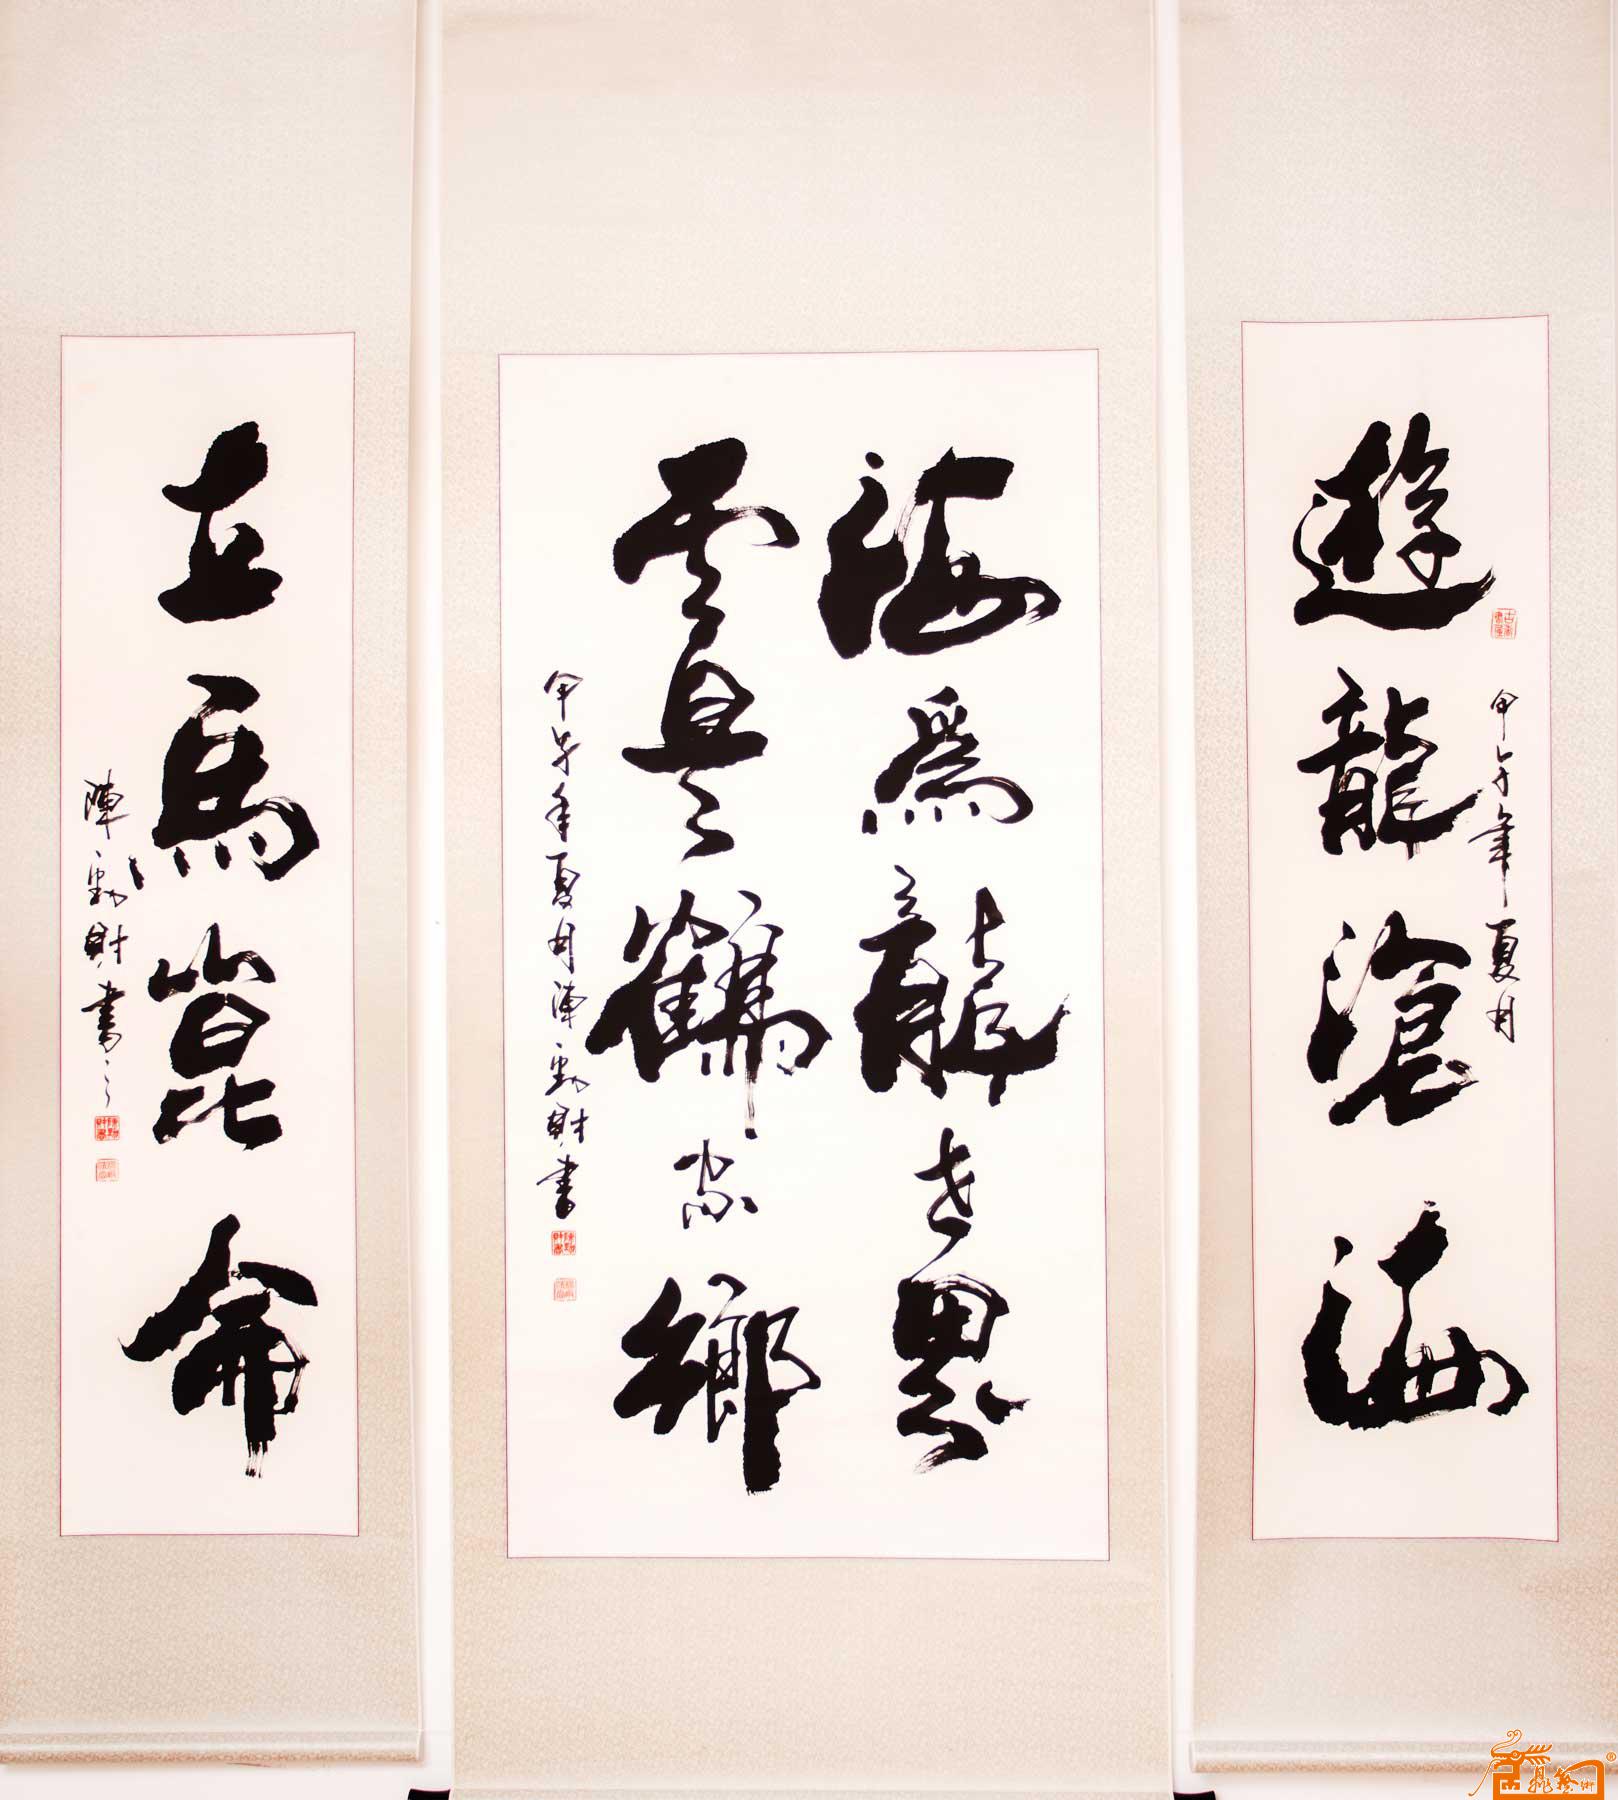 遊龍滄海
甲午年夏月
海為龍世界
雲是鶴家鄉
甲午年夏月陳勤財書
立馬崑崙
陳勤財書之